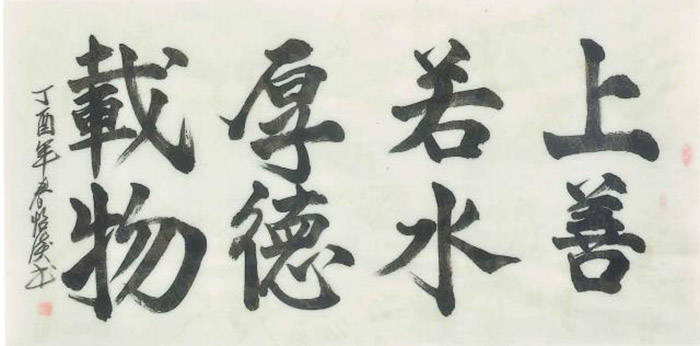 上善
若水
厚德
載物
丁酉年春怡漢书